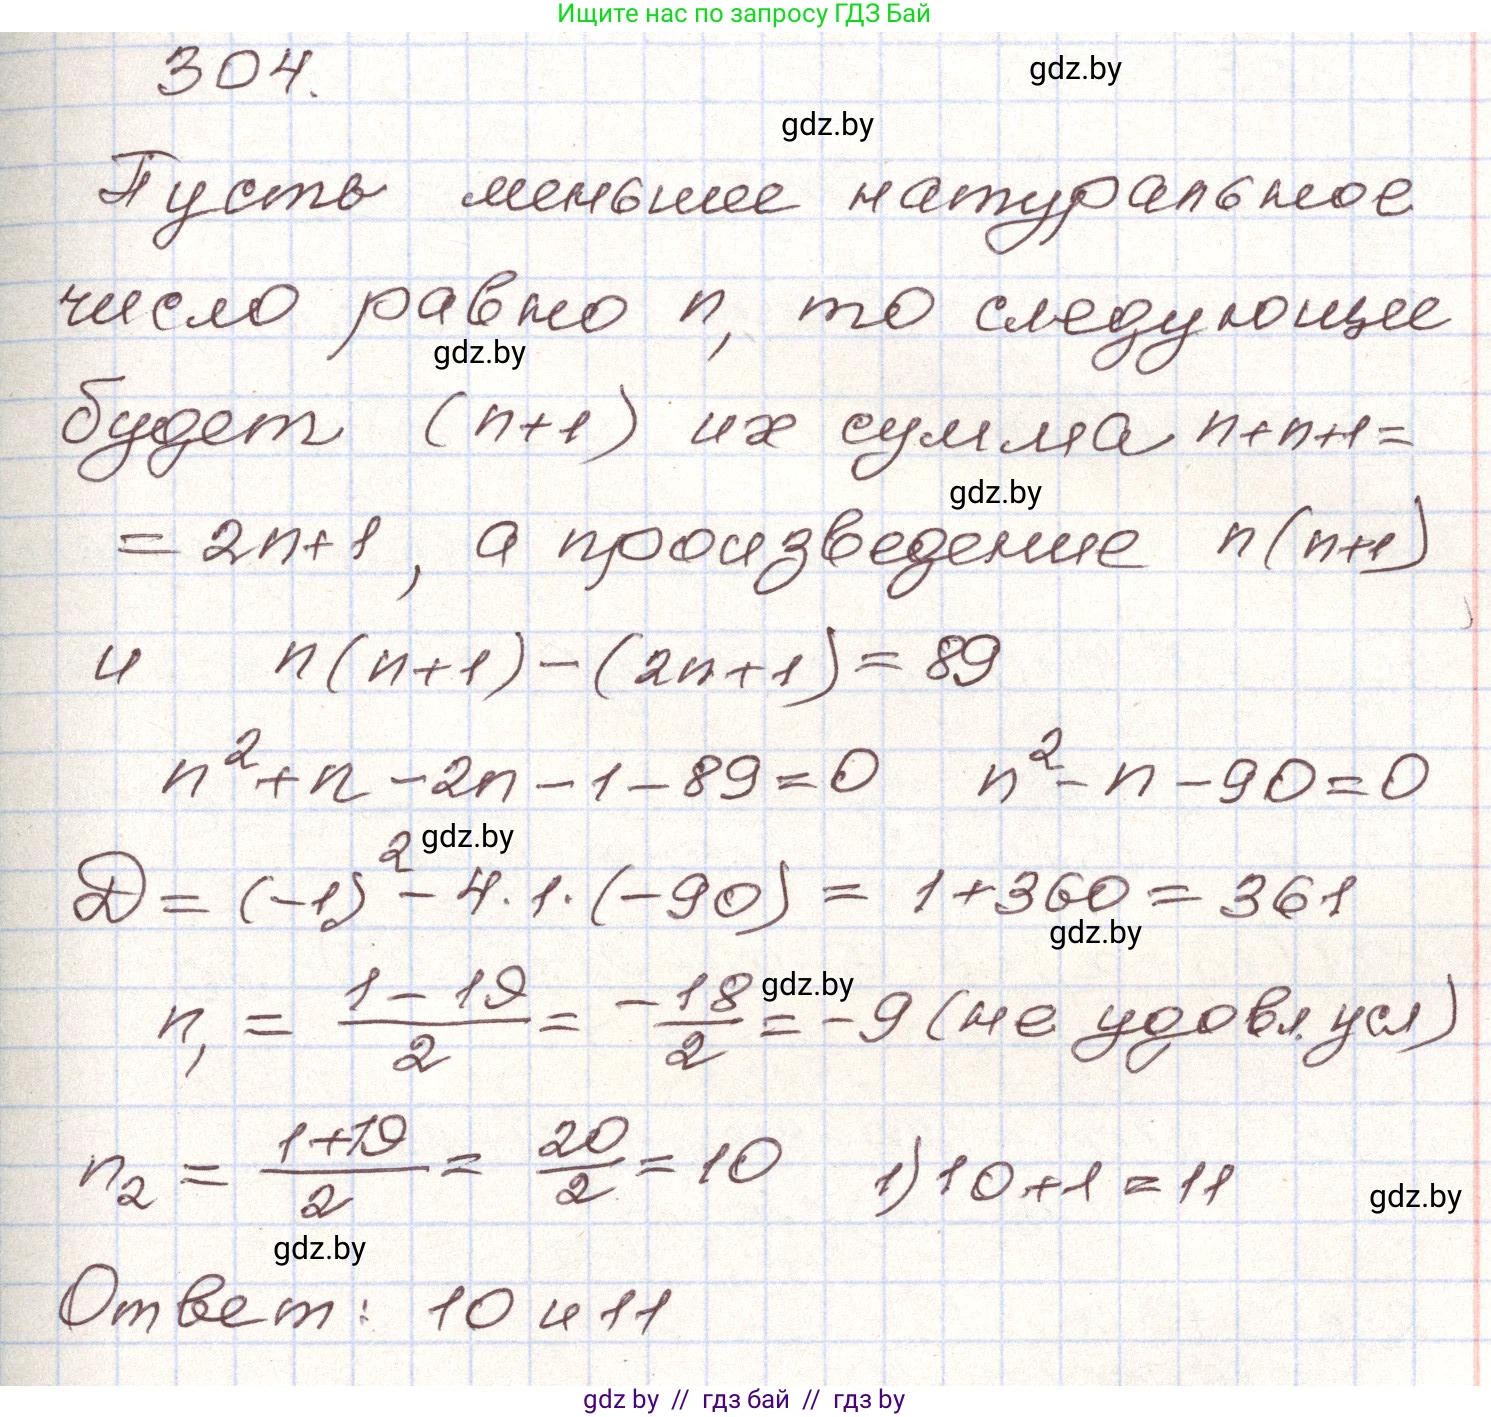 Ищите нас по запросу ГДЗ Бай
304.
gdz.by
gdz.by
Пусть меньшее натуральное
число равно n, то следующее
gdz.by
будет (n+1) их сумма n+n+1=
gdz.by
= 2n+1, а произведение n(n+1)
и n(n+1)-(2n+1)=89
n²+n-2n-1-89=0 n²-n-90=0
gdz.by
D=(-1)²-4·1·(-90)= 1+360=361
gdz.by
gdz.by
n₁ = (1-19)/2 = -18/2 = -9 (не удовл. усл)
n₂ = (1+19)/2 = 20/2 = 10 1) 10+1=11
gdz.by
gdz.by
Ответ: 10 и 11
gdz.by // гдз бай // гдз.by